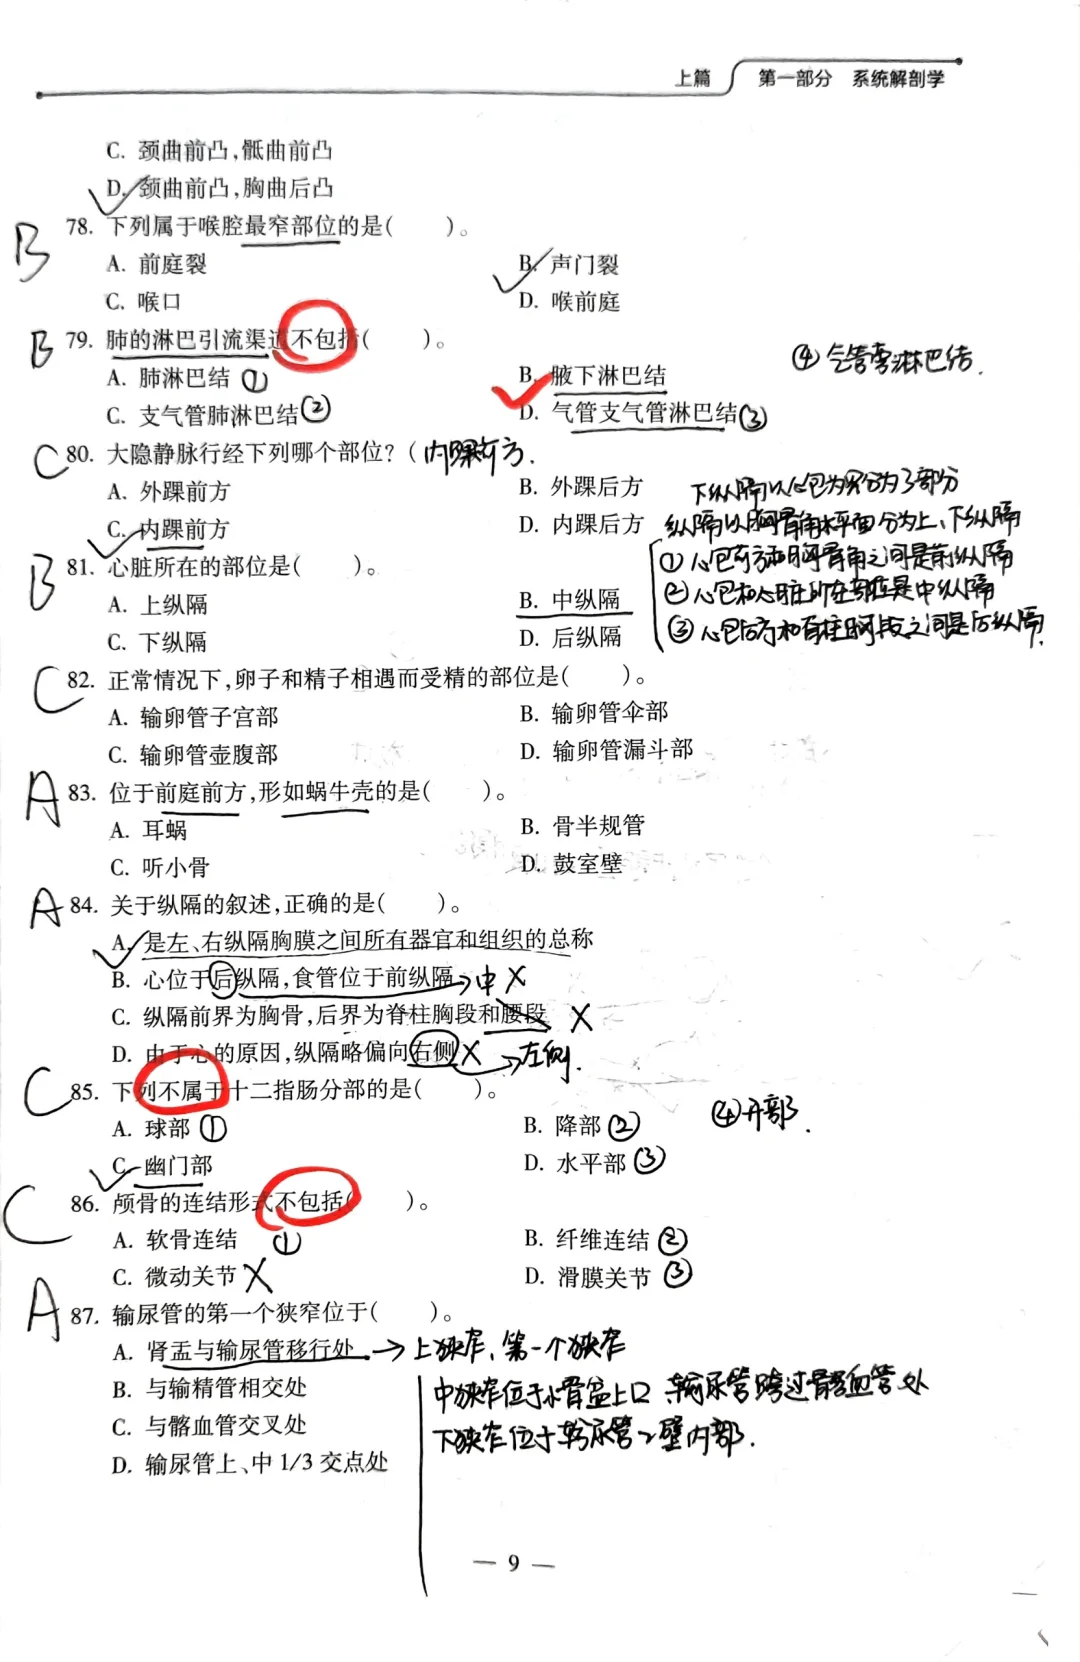 上篇 第一部分 系统解剖学
C. 颈曲前凸,骶曲前凸
D. 颈曲前凸,胸曲后凸
B 78. 下列属于喉腔最窄部位的是( )。
A. 前庭裂 B. 声门裂
C. 喉口 D. 喉前庭
B 79. 肺的淋巴引流渠道不包括( )。
④气管旁淋巴结.
A. 肺淋巴结 ① B. 腋下淋巴结
C. 支气管肺淋巴结② D. 气管支气管淋巴结③
C 80. 大隐静脉行经下列哪个部位?(内踝前方.
A. 外踝前方 B. 外踝后方
下纵隔以心包为界分为3部分
C. 内踝前方 D. 内踝后方
纵隔以胸骨角水平面分为上、下纵隔
B 81. 心脏所在的部位是( )。
①心包前方和胸骨角之间是前纵隔
A. 上纵隔 B. 中纵隔
②心包和心脏所在部位是中纵隔
C. 下纵隔 D. 后纵隔
③心包后方和脊柱胸段之间是后纵隔.
C 82. 正常情况下,卵子和精子相遇而受精的部位是( )。
A. 输卵管子宫部 B. 输卵管伞部
C. 输卵管壶腹部 D. 输卵管漏斗部
A 83. 位于前庭前方,形如蜗牛壳的是( )。
A. 耳蜗 B. 骨半规管
C. 听小骨 D. 鼓室壁
A 84. 关于纵隔的叙述,正确的是( )。
A. 是左、右纵隔胸膜之间所有器官和组织的总称
B. 心位于后纵隔,食管位于前纵隔→中 X
C. 纵隔前界为胸骨,后界为脊柱胸段和腰段 X
D. 由于心的原因,纵隔略偏向右侧 X →左侧.
C 85. 下列不属于十二指肠分部的是( )。
④升部.
A. 球部 ① B. 降部 ②
C. 幽门部 D. 水平部 ③
C 86. 颅骨的连结形式不包括( )。
A. 软骨连结 ① B. 纤维连结 ②
C. 微动关节 X D. 滑膜关节 ③
A 87. 输尿管的第一个狭窄位于( )。
A. 肾盂与输尿管移行处 → 上狭窄、第一个狭窄
B. 与输精管相交处 中狭窄位于小骨盆上口、输尿管跨过髂血管处
C. 与髂血管交叉处 下狭窄位于输尿管的壁内部.
D. 输尿管上、中 1/3 交点处
— 9 —